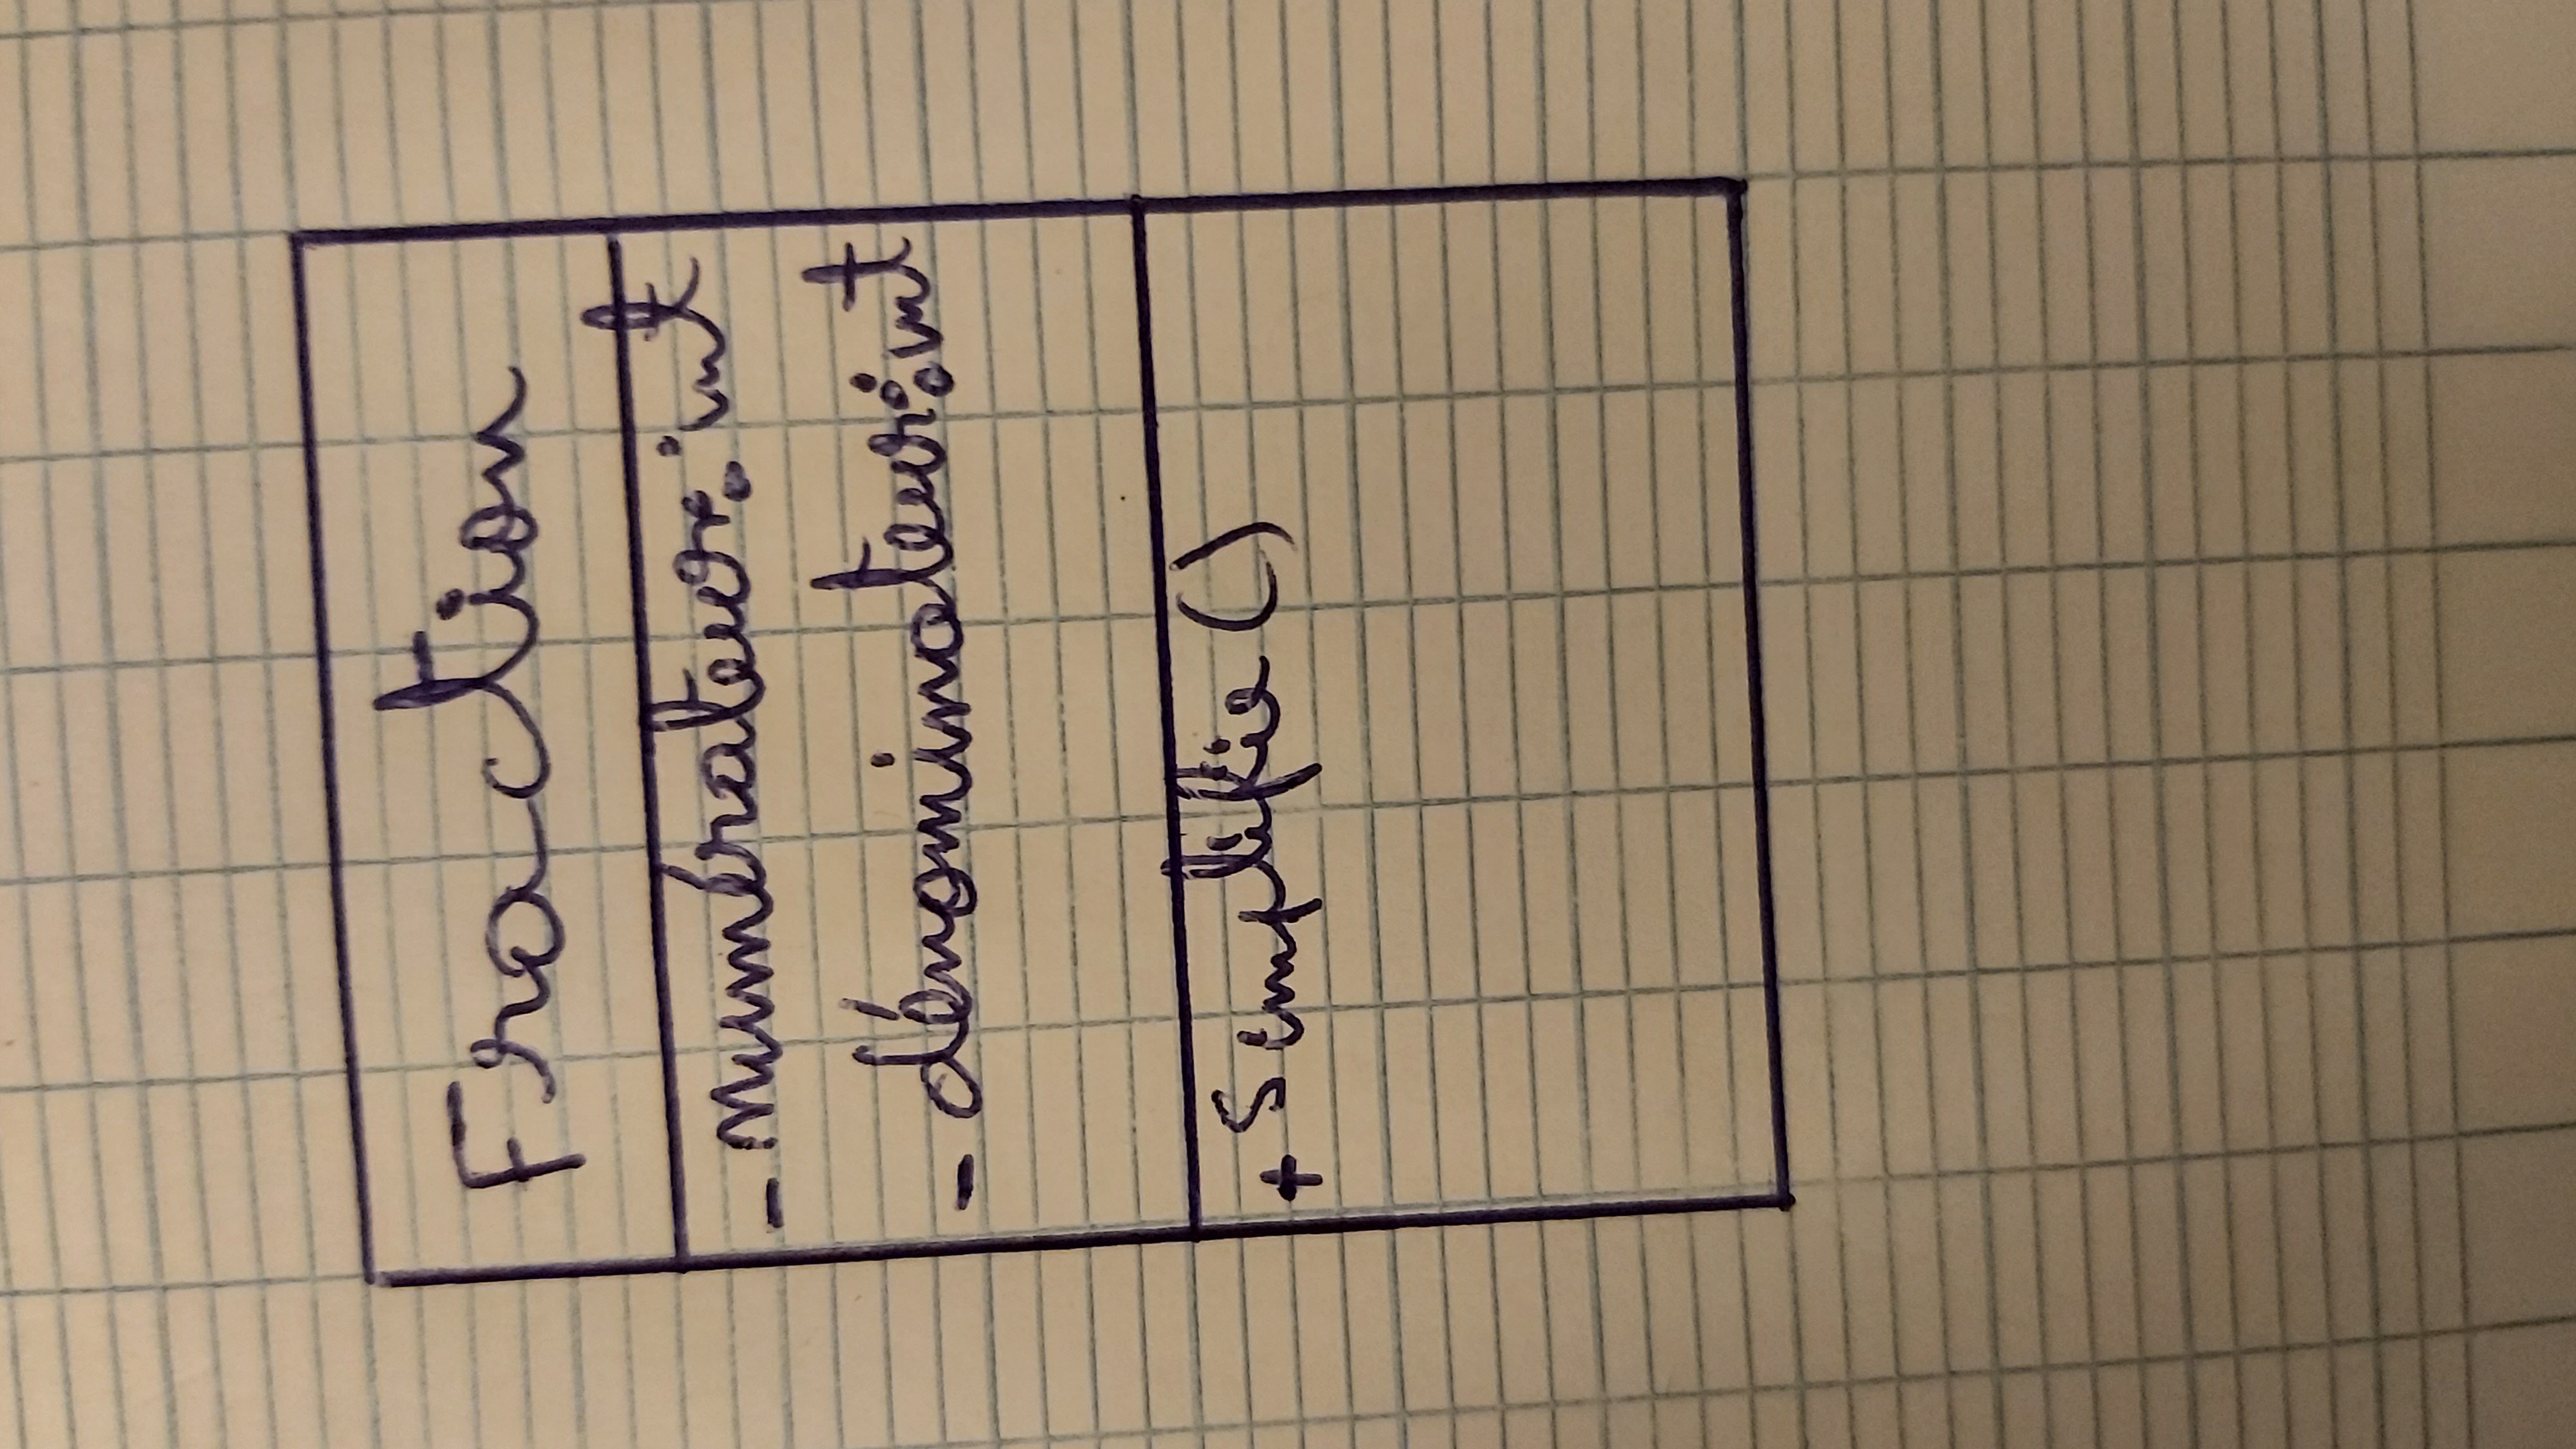 Fraction
- numérateur: int
- dénominateur: int
+ Simplifie()